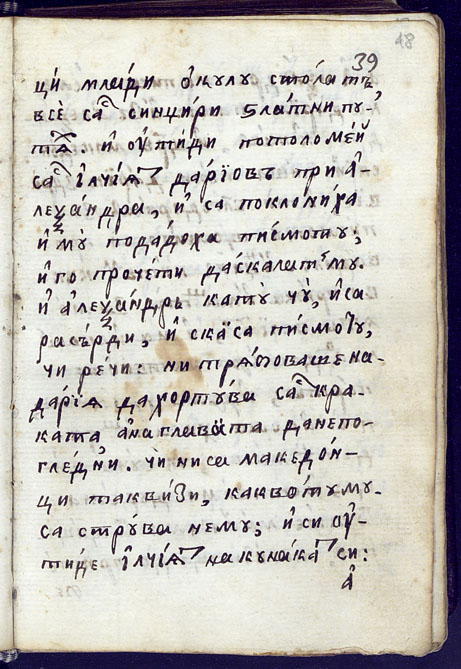 39
48
ци млади ѻкулу столатъ
всѐ са͛ синџири ѕла́тни пу-
тѧ͛ и҆ ѹ҆тиди потоломе́й
са͛ і҆лчїѧт дарїовъ при а҆-
леѯа́ндра, и҆ са поклони́ха
и҆ мꙋ̀ подадо́ха писмоту;
и҆ го прочѐти даскалатъ мꙋ.
и҆ а҆леѯа́ндръ катꙋ̀ чꙋ̀, и҆ са
расъ́рди, и҆ скѫ̈са писмоту,
чи речи: ни трѧ́ѻваше на-
дарїѧ да хортꙋ́ва са͛ кра-
ката, а҆ на глава̀та да непо-
гле́дни чи ниса македо́н-
ци такви́зи, каквѻ́тумꙋ-
са стрꙋ́ва немꙋ; и҆ си ѹ҆-
тиде і҆лчїѧт на кунака͛т си:
а҆